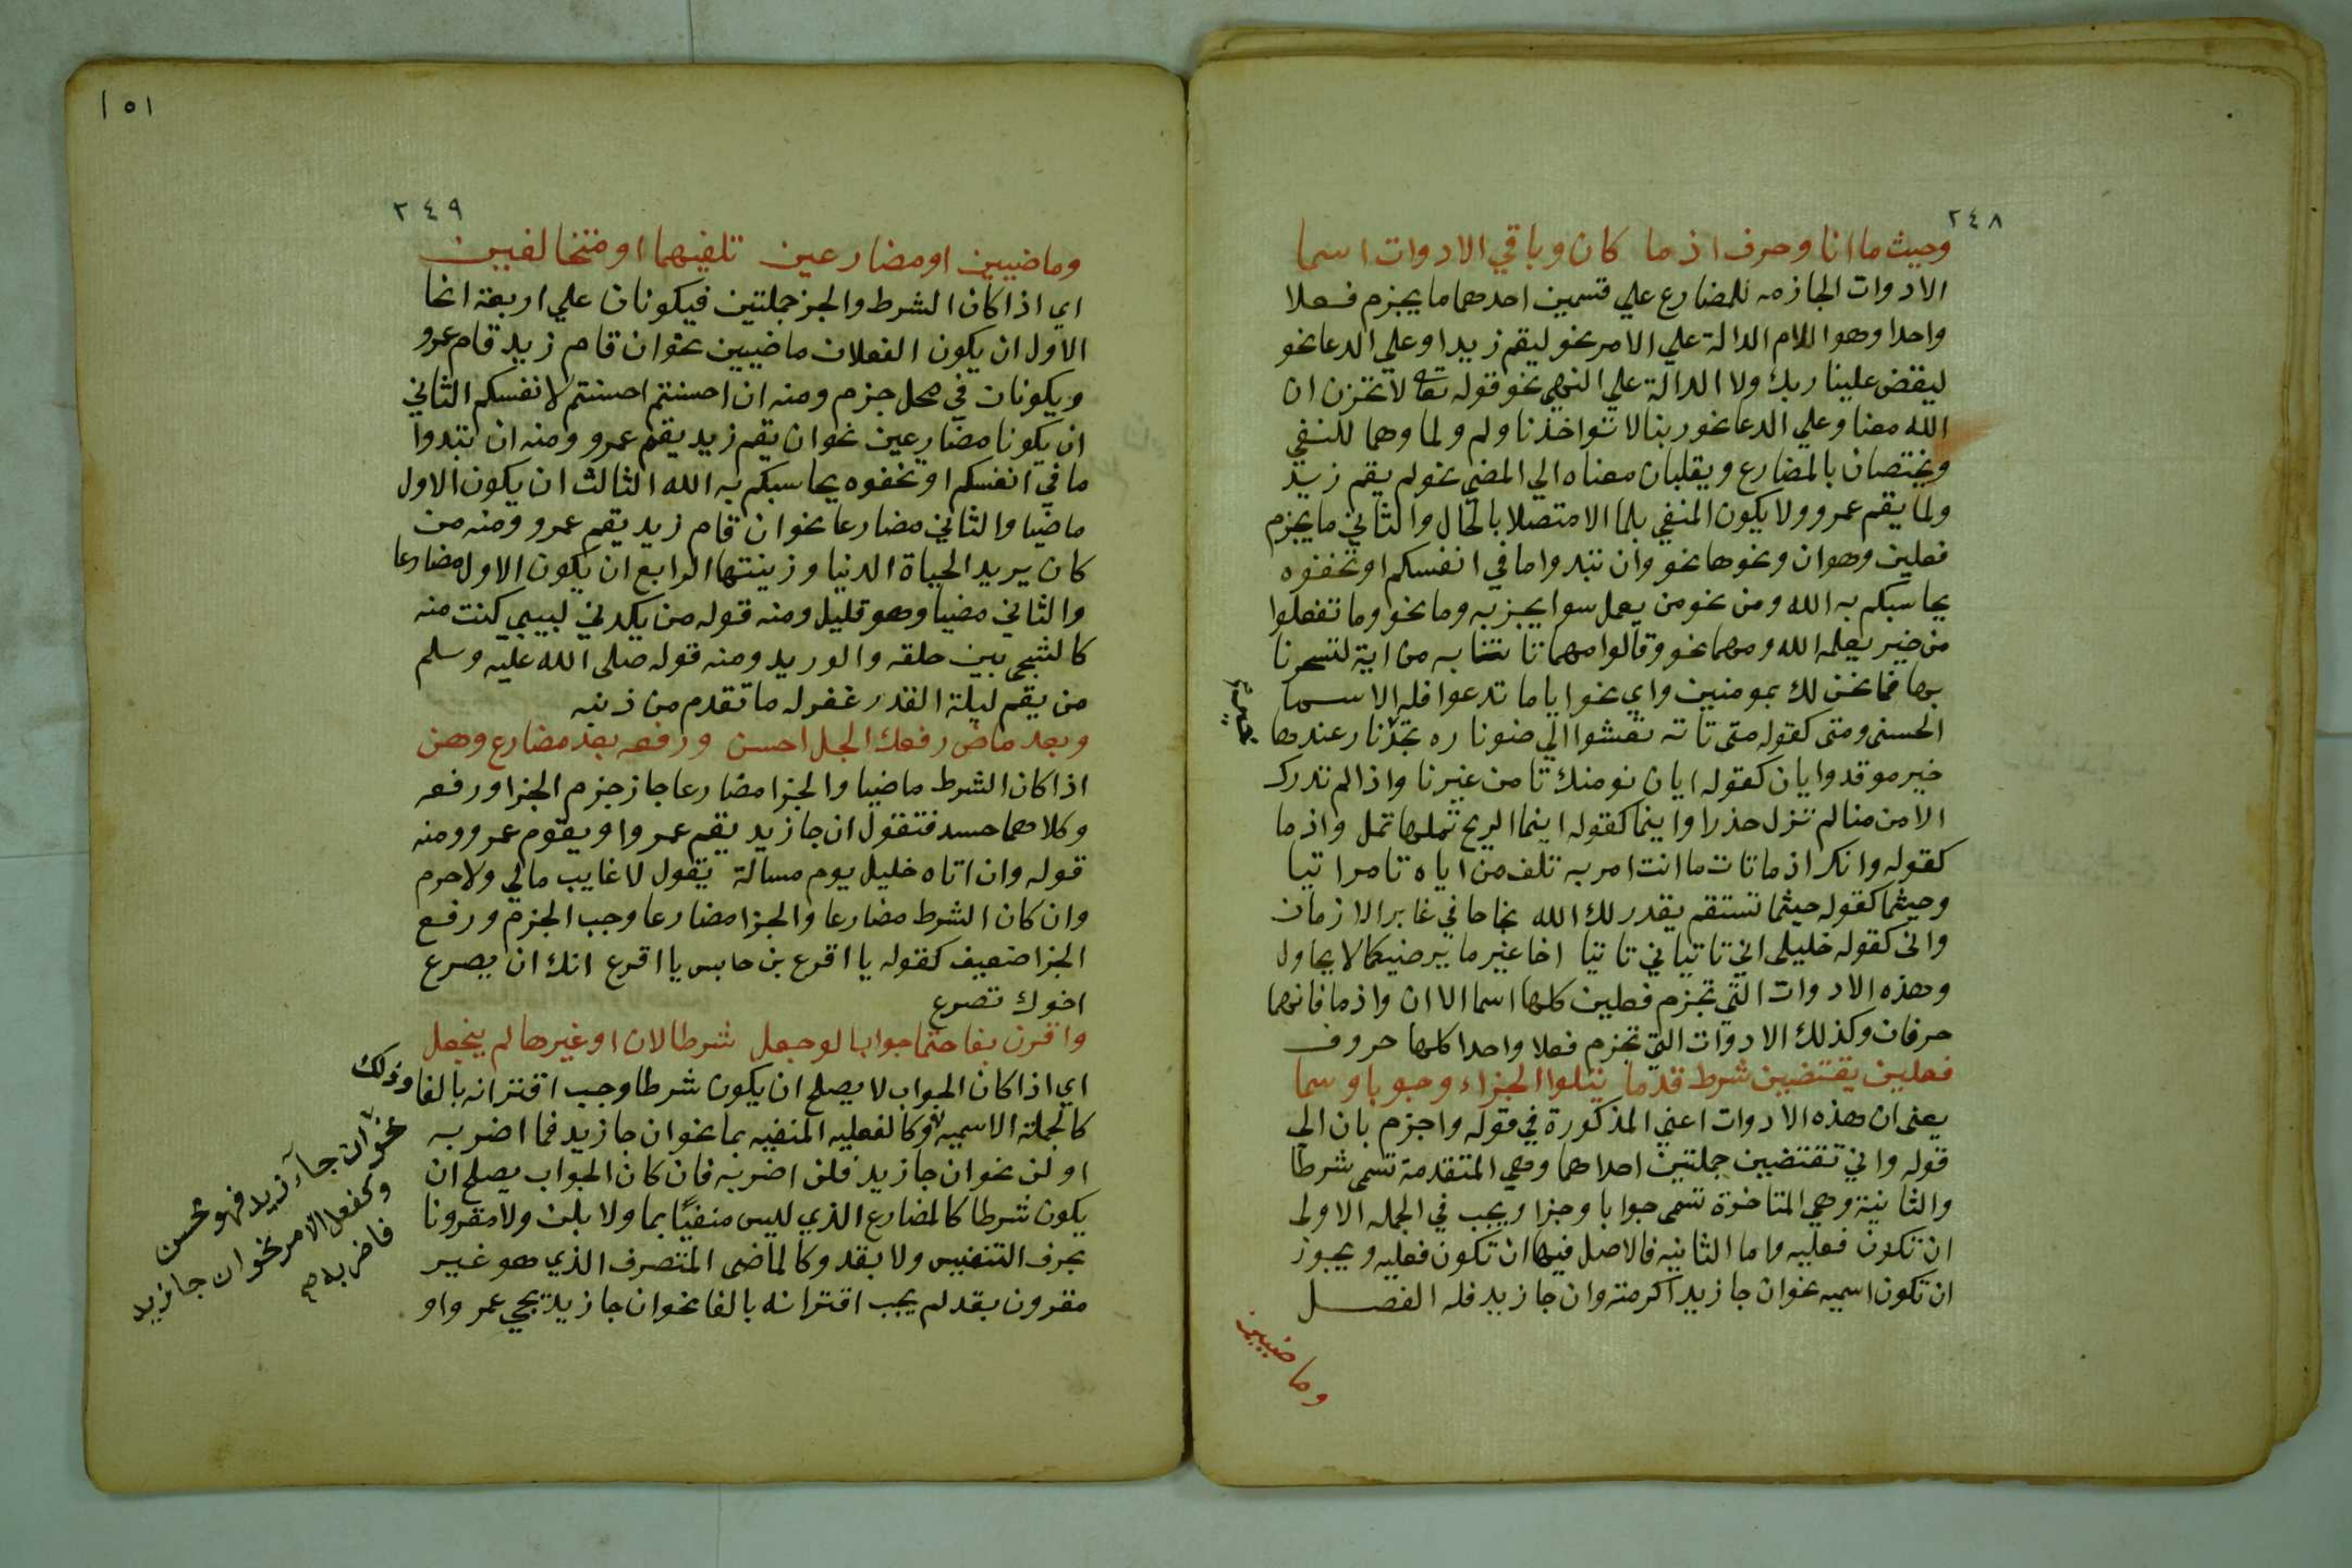 ٢٤٨
وحيث ما انا وحرف اذ ما كان وباقي الادوات اسما
الادوات الجازمه للمضارع علي قسمين احدهما ما يجزم فعلا
واحدا وهو اللام الدالة علي الامر نحو ليقم زيد او علي الدعا نحو
ليقض علينا ربك ولا الدالة علي النهي نحو قوله تعا لا تحزن ان
الله معنا وعلي الدعا نحو ربنا لا تواخذنا ولم ولما وهما للنفي
ويختصان بالمضارع ويقلبان معناه الي المضي نحو لم يقم زيد
ولما يقم عمرو ولا يكون المنفي بلما الا متصلا بالحال والثاني ما يجزم
فعلين وهو ان ونحوها نحو وان تبدوا ما في انفسكم او تخفوه
يحاسبكم به الله ومن نحو من يعمل سوا يجز به وما نحو وما تفعلوا
من خير يعلمه الله ومهما نحو وقالوا مهما تاتنا به من اية لتسحرنا
بها فما نحن لك بمومنين واي نحو ايا ما تدعوا فله الاسما
الحسنى ومتى كقوله متى تاته تعشوا الي ضو ناره تجد نار عندها
خير موقد وايان كقوله ايان نومنك تامن غيرنا واذا لم تدرك
الامن منا لم تزل حذرا واينما كقوله اينما الريح تملها تمل واذ ما
كقوله وانك اذ ما تات ما انت امر به تلف من اياه تامر اتيا
وحيثما كقوله حيثما تستقم يقدر لك الله نجاحا في غابر الازمان
وانى كقوله خليلي اني تاتياني تاتيا اخا غير ما يرضيكما لا يحاول
وهذه الادوات التي تجزم فعلين كلها اسما الا ان واذ ما فانهما
حرفان وكذلك الادوات التي تجزم فعلا واحدا كلها حروف
فعلين يقتضين شرط قدما يتلوا الجزاء وجوبا وسما
يعنى ان هذه الادوات اعني المذكورة في قوله واجزم بان الي
قوله واني تقتضين جملتين احداهما وهي المتقدمة تسمى شرطا
والثانية وهي المتاخرة تسمى جوابا وجزا ويجب في الجمله الاولى
ان تكون فعليه واما الثانيه فالاصل فيها ان تكون فعليه ويجوز
ان تكون اسميه نحو ان جا زيد اكرمته وان جا زيد فله الفضل
وماضيين
١٥١
٢٤٩
وماضيين او مضارعين تلفيهما او متخالفين
اي اذا كان الشرط والجز جملتين فيكونان علي اربعة انحا
الاول ان يكون الفعلان ماضيين نحو ان قام زيد قام عمرو
ويكونان في محل جزم ومنه ان احسنتم احسنتم لانفسكم الثاني
ان يكونا مضارعين نحو ان يقم زيد يقم عمرو ومنه ان تبدوا
ما في انفسكم او تخفوه يحاسبكم به الله الثالث ان يكون الاول
ماضيا والثاني مضارعا نحو ان قام زيد يقم عمرو ومنه من
كان يريد الحياة الدنيا وزينتها الرابع ان يكون الاول مضارعا
والثاني مضيا وهو قليل ومنه قوله من يكدني لبيبي كنت منه
كالشجى بين حلقه والوريد ومنه قوله صلى الله عليه وسلم
من يقم ليلة القدر غفر له ما تقدم من ذنبه
وبعد ماض رفعك الجل احسن ورفعه بعد مضارع وهن
اذا كان الشرط ماضيا والجزا مضارعا جاز جزم الجزا ورفعه
وكلاهما حسد فتقول ان جا زيد يقم عمرو او يقوم عمرو ومنه
قوله وان اتاه خليل يوم مسالة يقول لا غايب مالي ولا حرم
وان كان الشرط مضارعا والجزا مضارعا وجب الجزم ورفع
الجزا ضعيف كقوله يا اقرع بن حابس يا اقرع انك ان يصرع
اخوك تصرع
واقرن بفا حتما جوابا لو جعل شرطا لان او غيرها لم ينجعل
اي اذا كان الجواب لا يصلح ان يكون شرطا وجب اقترانه بالفا وذلك
كالجملة الاسميه وكالفعليه المنفيه بما نحو ان جا زيد فما اضربه
او لن نحو ان جا زيد فلن اضربه فان كان الجواب يصلح ان
يكون شرطا كالمضارع الذي ليس منفيًا بما ولا بلن ولا مقرونا
بحرف التنفيس ولا بقد وكالماضى المتصرف الذي هو غير
مقرون بقد لم يجب اقترانه بالفا نحو ان جا زيد يجي عمرو او
نحو ان جآء زيد فهو محسن
وكفعل الامر نحو ان جا زيد
فاضربه